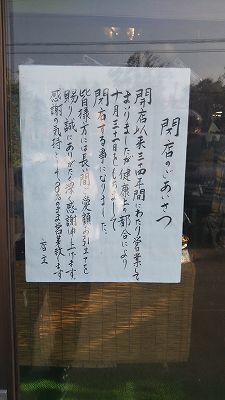 閉店のごあいさつ
開店以来三十四年間にわたり営業して
まいりましたが健康上の都合により
十月三十一日をもちまして
閉店する事になりました
皆様方には長い間ご愛顧お引立てを
賜り誠にありがたく深く感謝申し上げます。
感謝の気持として
営業致します。
店主